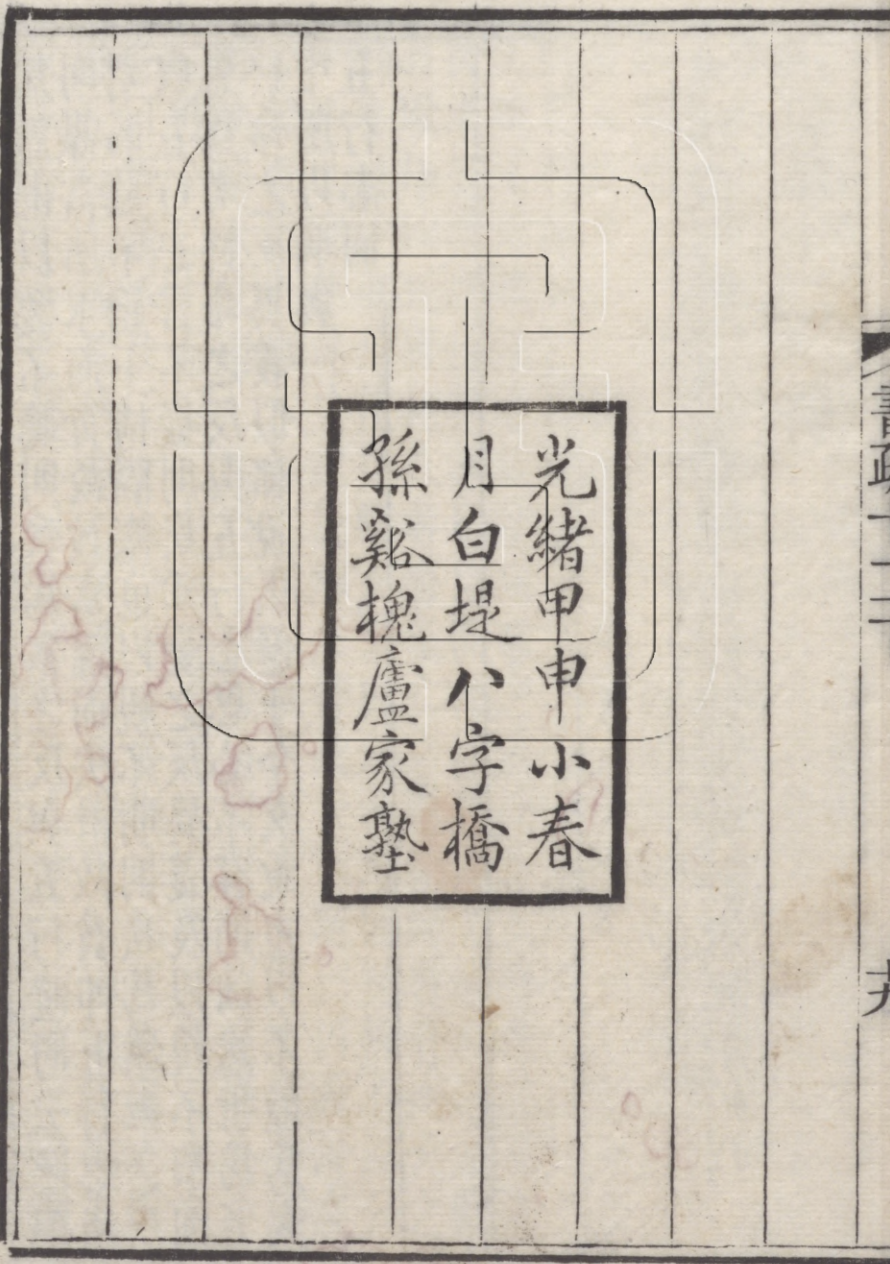 光緒甲申小春
月白堤八字橋
孫谿槐廬家塾